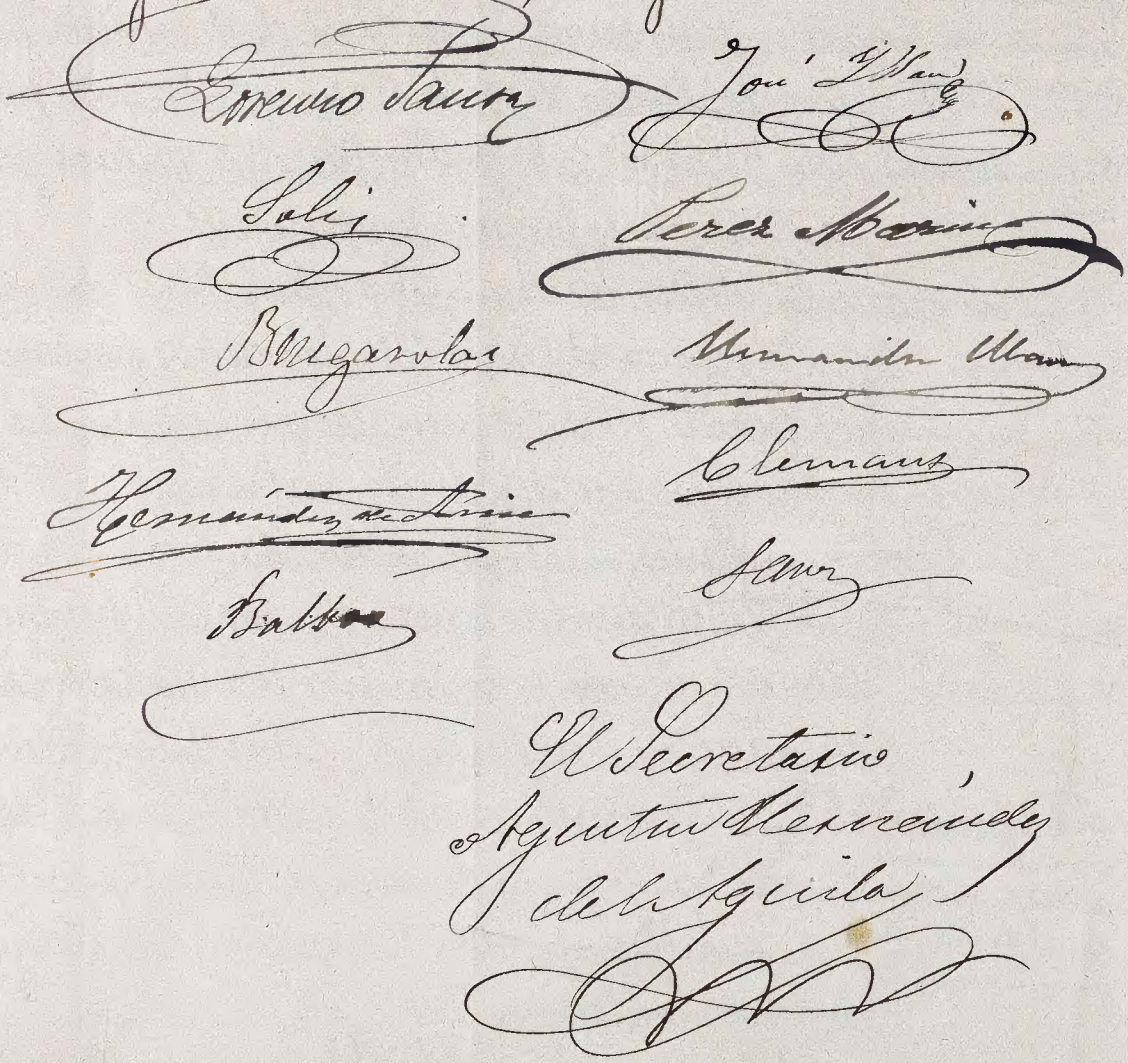 Lorenzo Sanz
José
Solis
Perez Marin
Brugarolas
Hernandez
Clemaus
Hernández de Ariza
Sanz
Balboa
El Secretario
Agustin Hernández
del Aguila